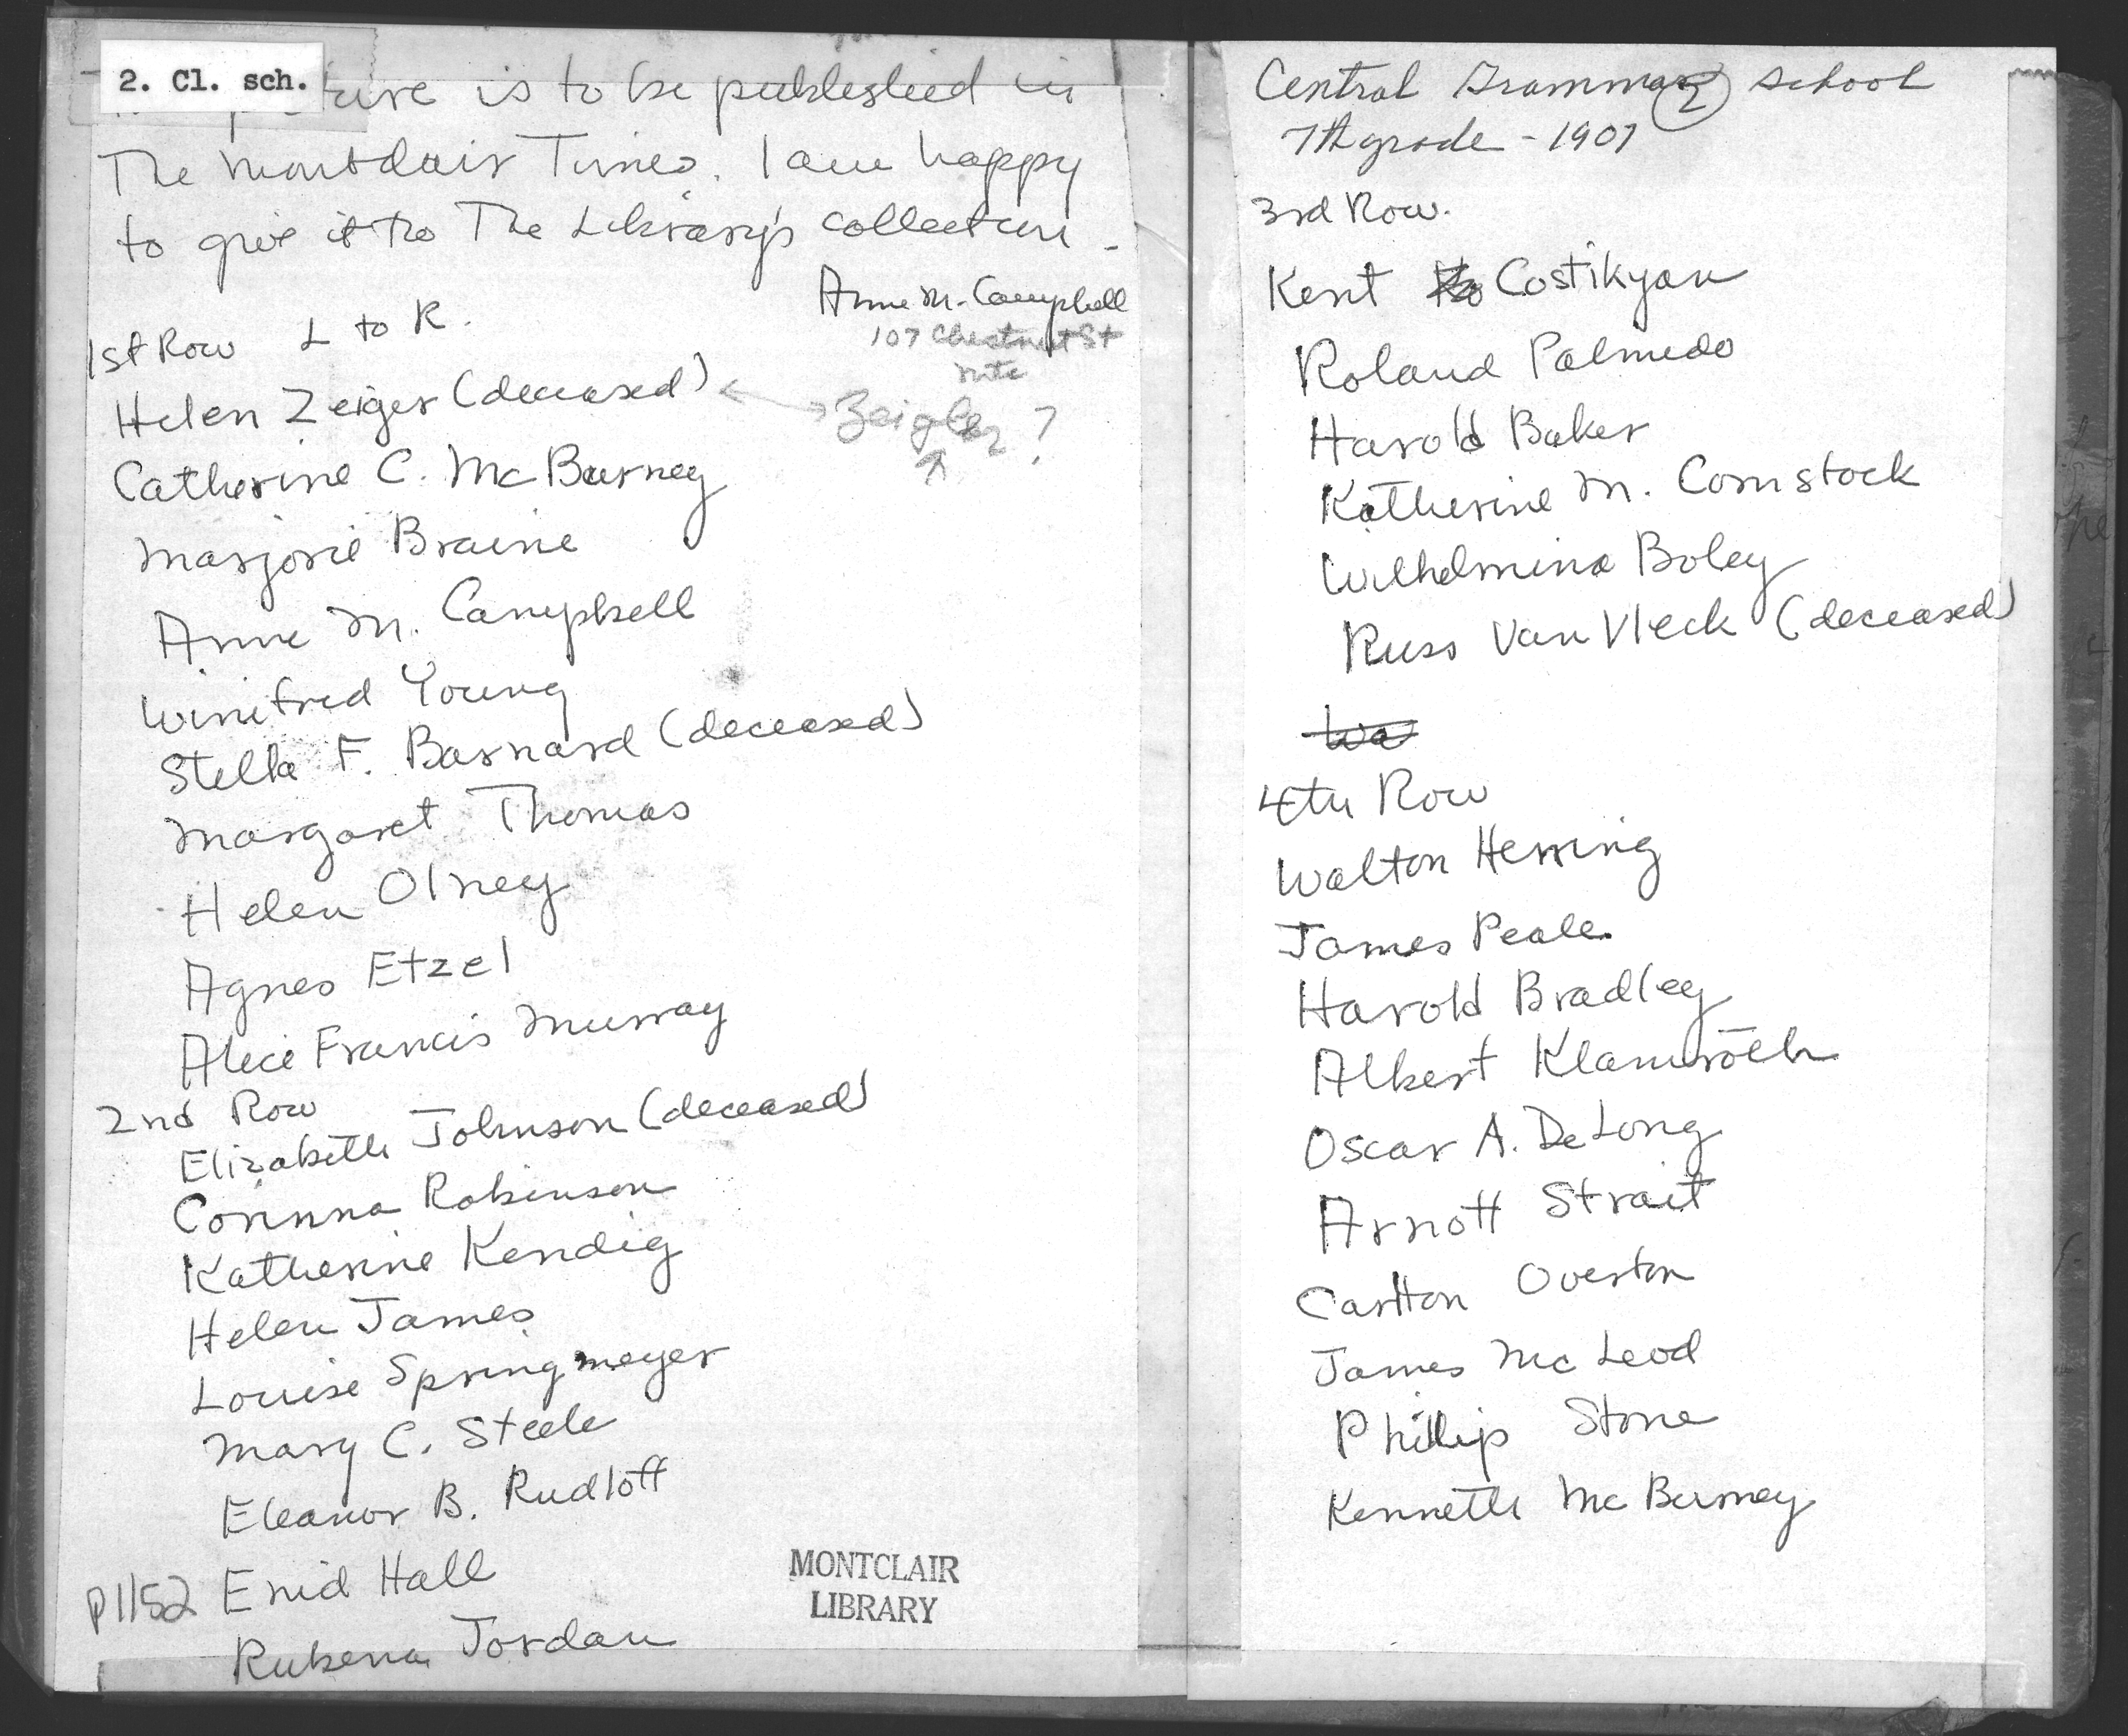 2. Cl. sch.
is to be published in
The Montclair Times. I am happy
to give it to The Library's collection -
Anne M. Campbell
107 Chestnut St
mtc
1st Row L to R.
Helen Zeiger (deceased)
Zeigler ?
Catherine C. McBurney
Marjorie Braine
Anne M. Campbell
Winifred Young
Stella F. Barnard (deceased)
Margaret Thomas
Helen Olney
Agnes Etzel
Alice Francis Murray
2nd Row
Elizabeth Johnson (deceased)
Corinna Robinson
Katherine Kendig
Helen James
Louise Springmeyer
Mary C. Steele
Eleanor B. Rudloff
p1152 Enid Hall
Rubena Jordan
MONTCLAIR
LIBRARY
Central Grammar School
2
7th grade - 1907
3rd Row.
Kent Costikyan
Roland Palmedo
Harold Baker
Katherine M. Comstock
Wilhelmina Boley
Russ Van Vleck (deceased)
Wa
4th Row
Walton Herring
James Peale.
Harold Bradley
Albert Klamroth
Oscar A. DeLong
Arnott Strait
Carlton Overton
James McLeod
Phillip Stone
Kenneth McBurney